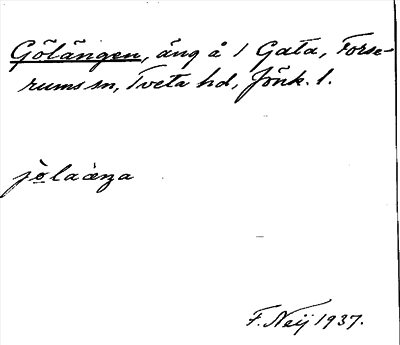 Gölängen, äng å 1 Gata, Forse-
rums sn, Tveta hd, Jönk. l.
jòlaæŋa
F. Neij 1937.